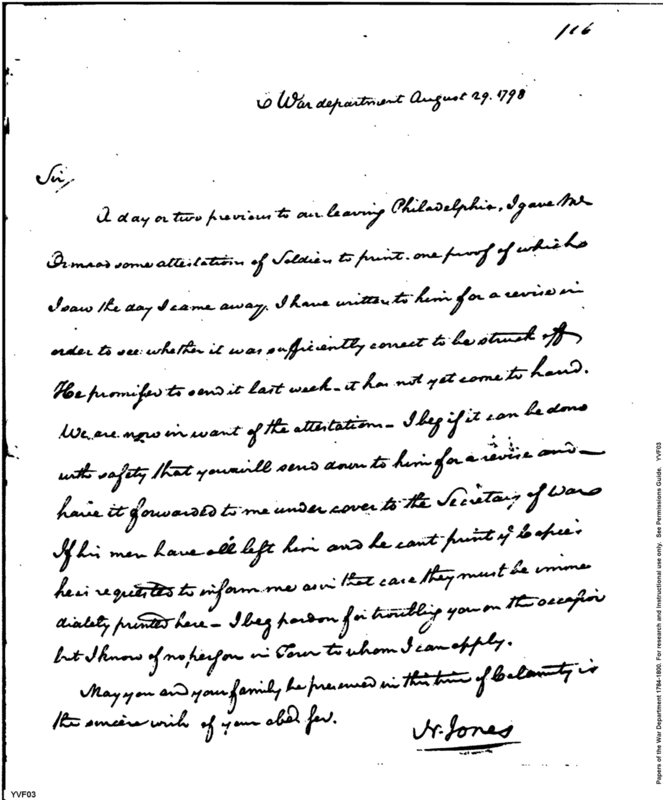 116
War department August 29. 1798
Sir,
A day or two previous to our leaving Philadelphia, I gave Mr
Ormrod some attestations of Soldiers to print. one proof of which
I saw the day I came away. I have written to him for a revise in
order to see whether it was sufficiently correct to be struck off
He promises to send it last week - it has not yet come to hand.
We are now in want of the attestations - I beg if it can be done
with safety that you will send down to him for a revise and -
have it forwarded to me under cover to the Secretary of War
If his men have all left him and he cant print ye Copies
he is requested to inform me as in that case they must be imme
diately printed here - I beg pardon for troubling you on the occasion
but I know of no person in Town to whom I can apply.
May you and your family be preserved in this time of Calamity is
the sincere wish of your obed. ser.
N. Jones
YVF03
Papers of the War Department 1784-1800. For research and instructional use only. See Permissions Guide. YVF03